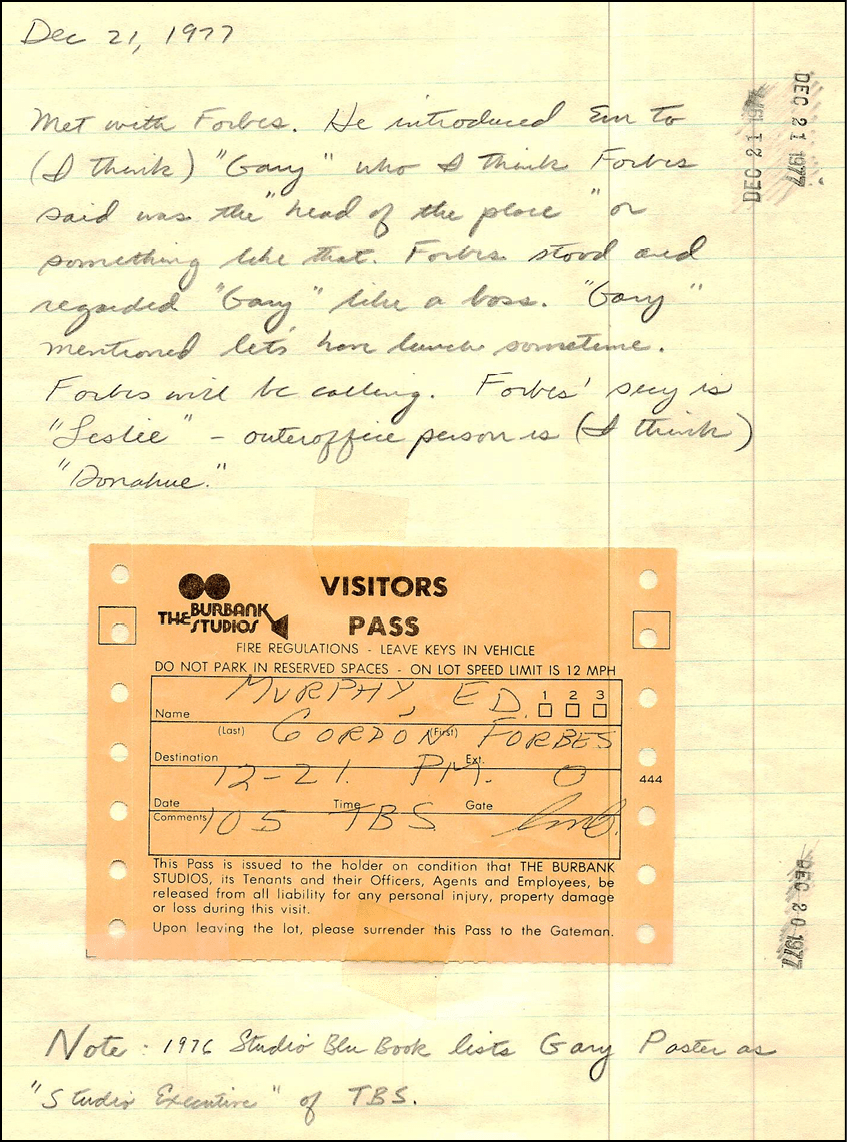 Dec 21, 1977
DEC 21 1977
DEC 21 1977
Met with Forbes. He introduced Em to
(I think) "Gary" who I think Forbes
said was the "head of the place" or
something like that. Forbes stood and
regarded "Gary" like a boss. "Gary"
mentioned let's have lunch sometime.
Forbes will be calling. Forbes' secy is
"Leslie" - outeroffice person is (I think)
"Donahue."
THE BURBANK STUDIOS
VISITORS
PASS
FIRE REGULATIONS - LEAVE KEYS IN VEHICLE
DO NOT PARK IN RESERVED SPACES - ON LOT SPEED LIMIT IS 12 MPH
MURPHY, ED. 1 2 3
Name
(Last) (First)
GORDON FORBES
Destination Ext.
12-21. PM. 0
444
Date Time Gate
Comments 105 TBS
This Pass is issued to the holder on condition that THE BURBANK
STUDIOS, its Tenants and their Officers, Agents and Employees, be
released from all liability for any personal injury, property damage
or loss during this visit.
Upon leaving the lot, please surrender this Pass to the Gateman.
DEC 20 1977
Note: 1976 Studio Blu Book lists Gary Paster as
"Studio Executive" of TBS.